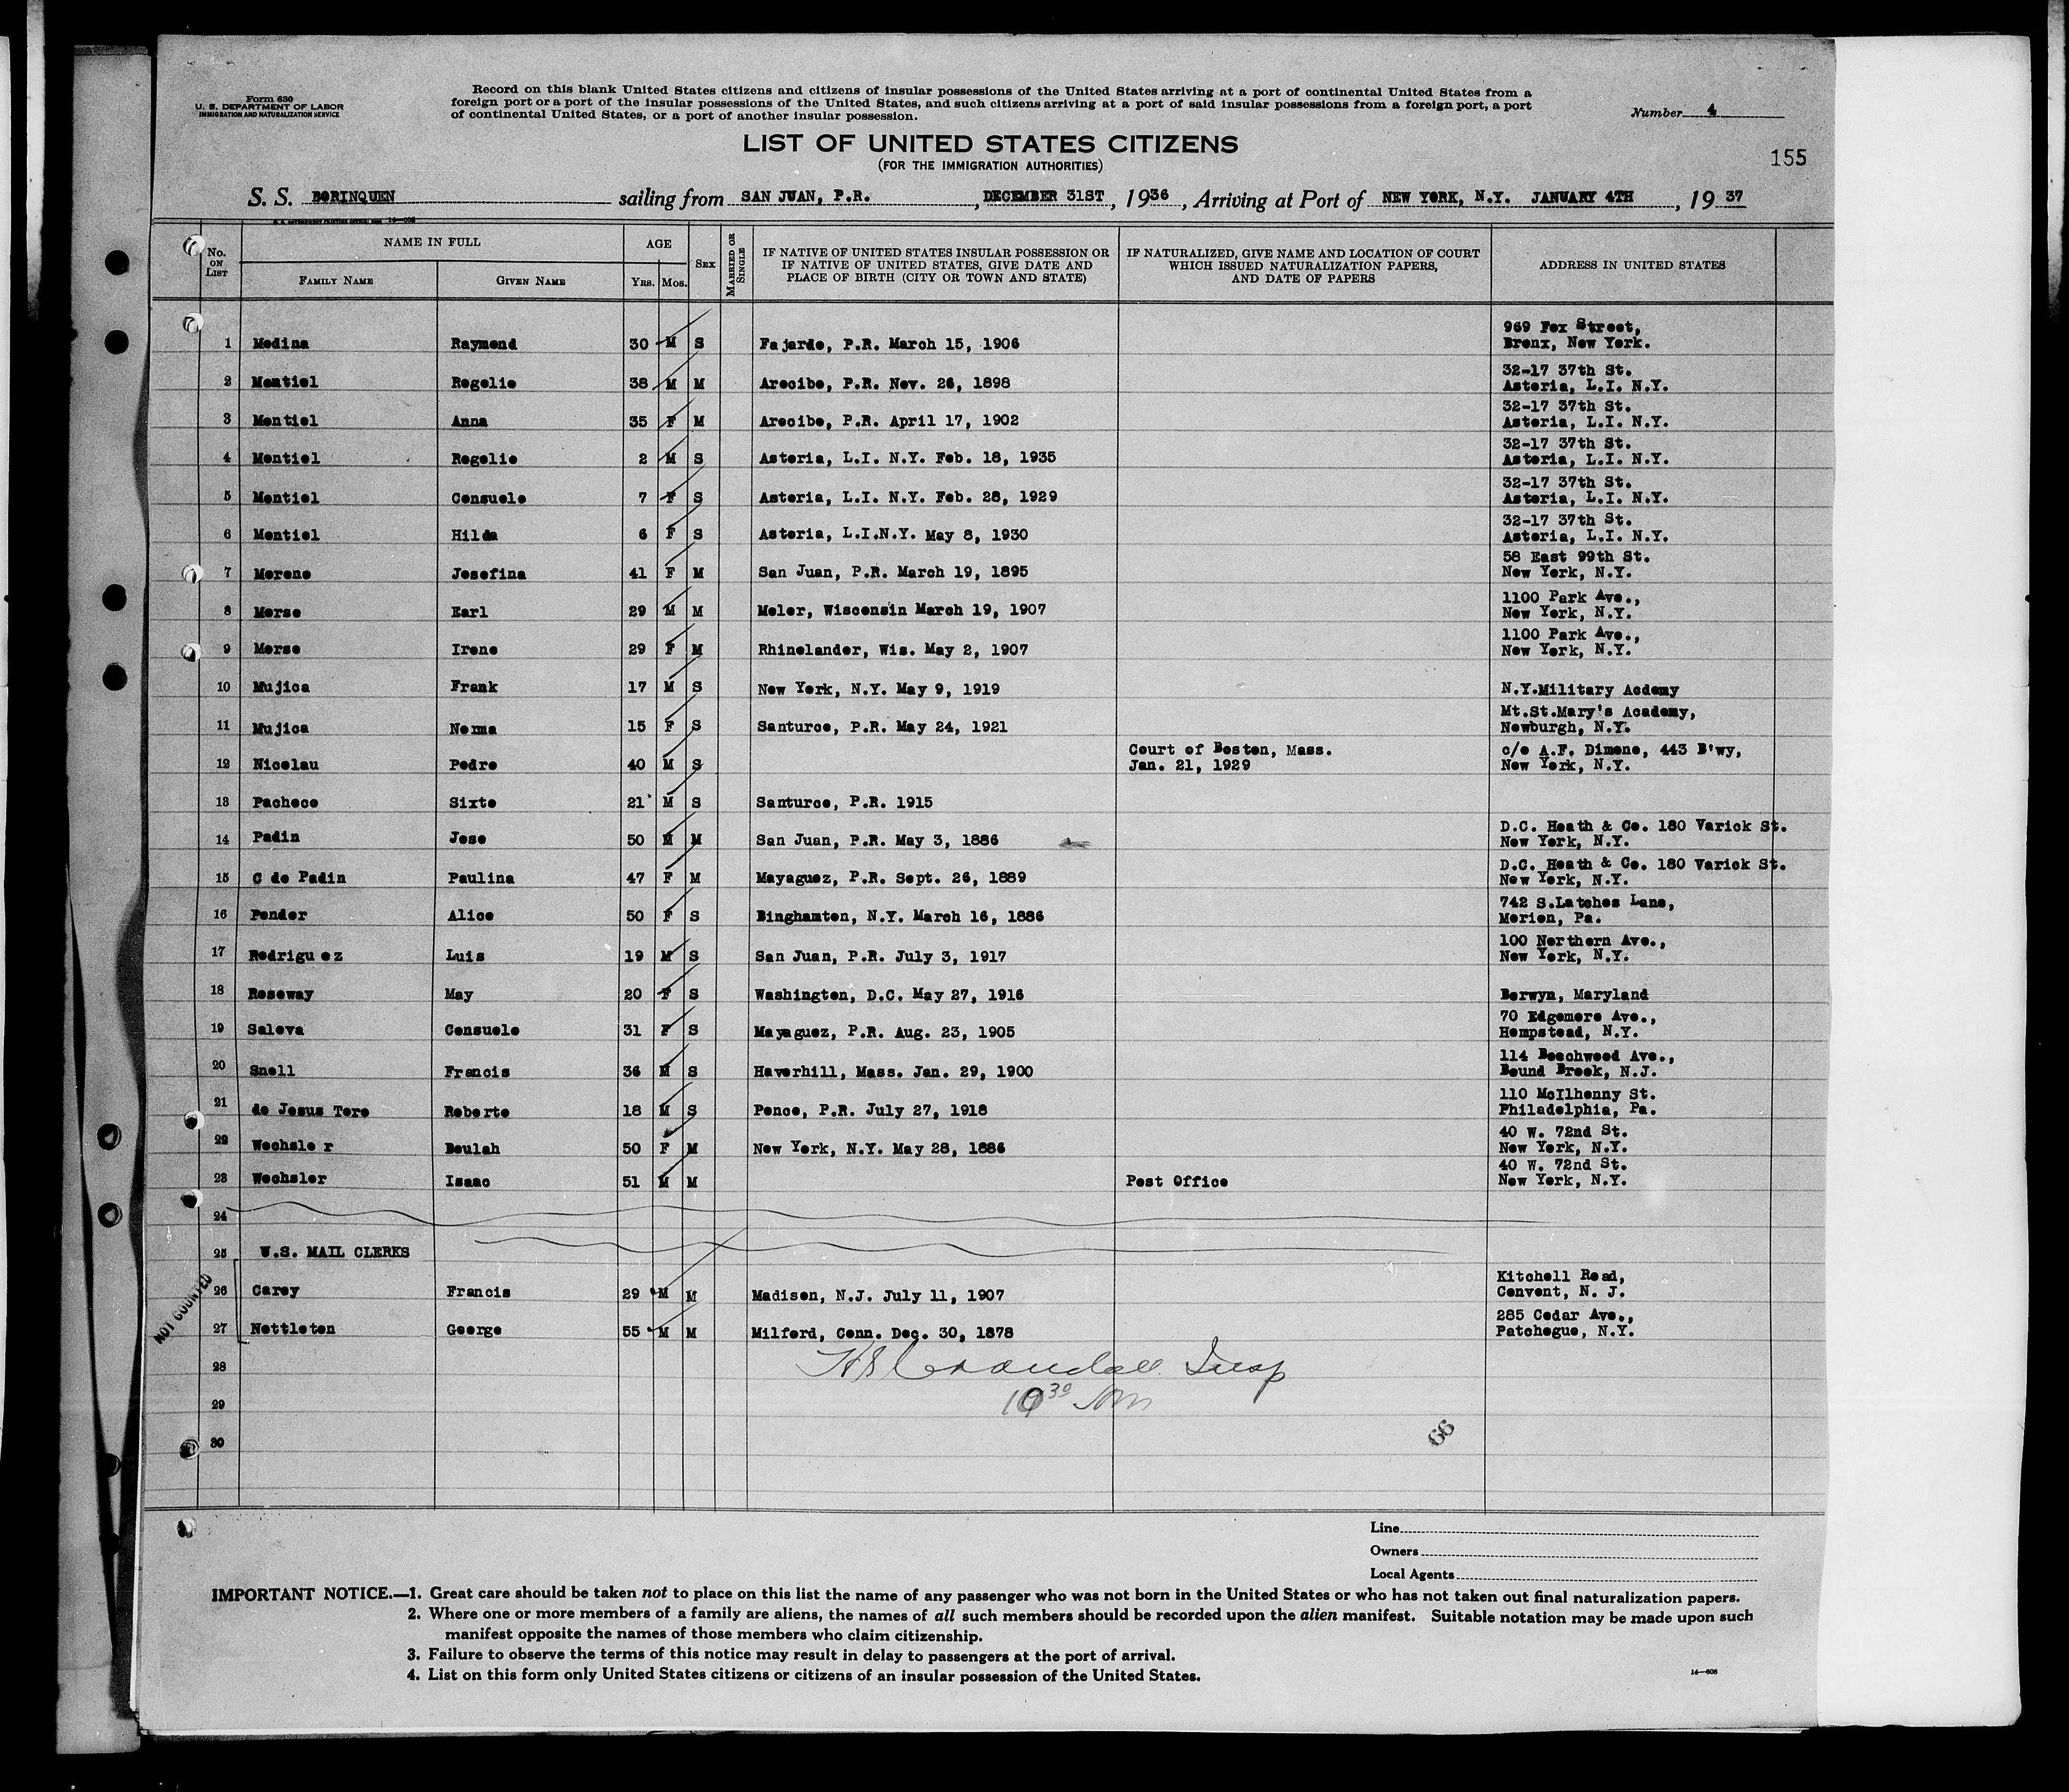 Form 630
U. S. DEPARTMENT OF LABOR
IMMIGRATION AND NATURALIZATION SERVICE
Record on this blank United States citizens and citizens of insular possessions of the United States arriving at a port of continental United States from a
foreign port or a port of the insular possessions of the United States, and such citizens arriving at a port of said insular possessions from a foreign port, a port
of continental United States, or a port of another insular possession.
Number 4
LIST OF UNITED STATES CITIZENS
(FOR THE IMMIGRATION AUTHORITIES)
155
S. S. BORINQUEN sailing from SAN JUAN, P.R. , DECEMBER 31ST , 1936 , Arriving at Port of NEW YORK, N.Y. JANUARY 4TH , 19 37
No. ON LIST
NAME IN FULL
FAMILY NAME GIVEN NAME
AGE
YRS. MOS.
SEX
MARRIED OR SINGLE
IF NATIVE OF UNITED STATES INSULAR POSSESSION OR
IF NATIVE OF UNITED STATES, GIVE DATE AND
PLACE OF BIRTH (CITY OR TOWN AND STATE)
IF NATURALIZED, GIVE NAME AND LOCATION OF COURT
WHICH ISSUED NATURALIZATION PAPERS,
AND DATE OF PAPERS
ADDRESS IN UNITED STATES
1 Medina Raymond 30 M S Fajardo, P.R. March 15, 1906 969 Fox Street,
Bronx, New York.
2 Montiel Rogelio 38 M M Arecibo, P.R. Nov. 26, 1898 32-17 37th St.
Astoria, L.I. N.Y.
3 Montiel Anna 35 F M Arecibo, P.R. April 17, 1902 32-17 37th St.
Astoria, L.I. N.Y.
4 Montiel Rogelio 2 M S Astoria, L.I. N.Y. Feb. 18, 1935 32-17 37th St.
Astoria, L.I. N.Y.
5 Montiel Consuelo 7 F S Astoria, L.I. N.Y. Feb. 28, 1929 32-17 37th St.
Astoria, L.I. N.Y.
6 Montiel Hilda 6 F S Astoria, L.I.N.Y. May 8, 1930 32-17 37th St.
Astoria, L.I. N.Y.
7 Moreno Josefina 41 F M San Juan, P.R. March 19, 1895 58 East 99th St.
New York, N.Y.
8 Morse Earl 29 M M Moler, Wisconsin March 19, 1907 1100 Park Ave.,
New York, N.Y.
9 Morse Irene 29 F M Rhinelander, Wis. May 2, 1907 1100 Park Ave.,
New York, N.Y.
10 Mujica Frank 17 M S New York, N.Y. May 9, 1919 N.Y.Military Acdemy
11 Mujica Norma 15 F S Santurce, P.R. May 24, 1921 Mt.St.Mary's Academy,
Newburgh, N.Y.
12 Nicolau Pedro 40 M S Court of Boston, Mass.
Jan. 21, 1929 c/o A.F. Dimone, 443 B'wy,
New York, N.Y.
13 Pacheco Sixto 21 M S Santurce, P.R. 1915
14 Padin Jose 50 M M San Juan, P.R. May 3, 1886 D.C. Heath & Co. 180 Varick St.
New York, N.Y.
15 C de Padin Paulina 47 F M Mayaguez, P.R. Sept. 26, 1889 D.C. Heath & Co. 180 Varick St.
New York, N.Y.
16 Pender Alice 50 F S Binghamton, N.Y. March 16, 1886 742 S.Latches Lane,
Merion, Pa.
17 Rodriguez Luis 19 M S San Juan, P.R. July 3, 1917 100 Northern Ave.,
New York, N.Y.
18 Roseway May 20 F S Washington, D.C. May 27, 1916 Berwyn, Maryland
19 Saleva Consuelo 31 F S Mayaguez, P.R. Aug. 23, 1905 70 Edgemore Ave.,
Hempstead, N.Y.
20 Snell Francis 36 M S Haverhill, Mass. Jan. 29, 1900 114 Beechwood Ave.,
Bound Brook, N.J.
21 de Jesus Toro Roberto 18 M S Ponce, P.R. July 27, 1918 110 McIlhenny St.
Philadelphia, Pa.
22 Wechsler Beulah 50 F M New York, N.Y. May 28, 1886 40 W. 72nd St.
New York, N.Y.
23 Wechsler Isaac 51 M M Post Office 40 W. 72nd St.
New York, N.Y.
24
25 U.S. MAIL CLERKS
NOT COUNTED
26 Carey Francis 29 M M Madison, N.J. July 11, 1907 Kitchell Road,
Convent, N. J.
27 Nettleton George 55 M M Milford, Conn. Dec. 30, 1878 285 Cedar Ave.,
Patchogue, N.Y.
28 H S Crandall Insp
29 10 30 Am
30
66
Line
Owners
Local Agents
IMPORTANT NOTICE.—1. Great care should be taken not to place on this list the name of any passenger who was not born in the United States or who has not taken out final naturalization papers.
2. Where one or more members of a family are aliens, the names of all such members should be recorded upon the alien manifest. Suitable notation may be made upon such
manifest opposite the names of those members who claim citizenship.
3. Failure to observe the terms of this notice may result in delay to passengers at the port of arrival.
4. List on this form only United States citizens or citizens of an insular possession of the United States.
14—606